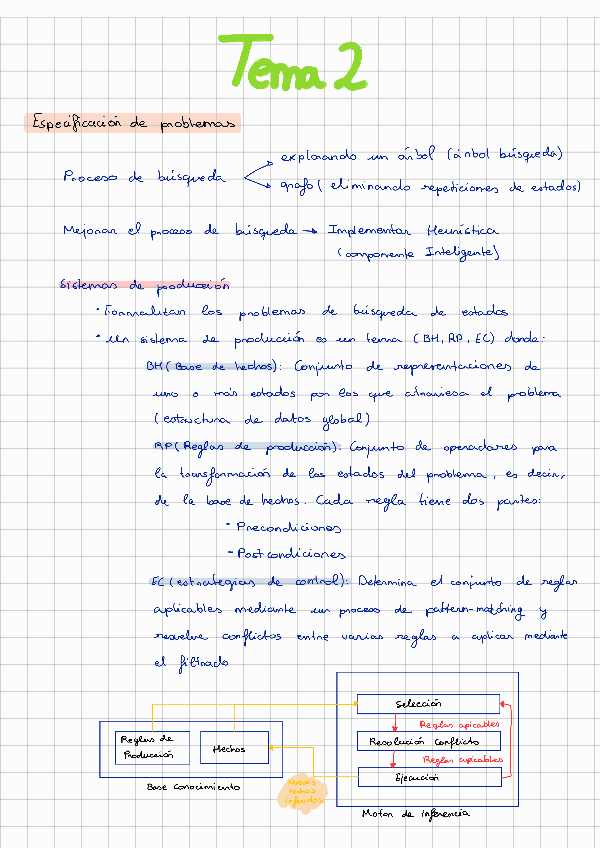 Tema 2
Especificación de problemas
explorando un árbol (árbol búsqueda)
Proceso de búsqueda
grafo (eliminando repeticiones de estados)
Mejorar el proceso de búsqueda → Implementar Heurística
(componente Inteligente)
Sistemas de producción
· Formalizan los problemas de búsqueda de estados
· Un sistema de producción es un terna (BH, RP, EC) donde:
BH (Base de hechos): Conjunto de representaciones de
uno o más estados por los que atraviesa el problema
(estructura de datos global)
RP (Reglas de producción): Conjunto de operadores para
la transformación de los estados del problema, es decir,
de la base de hechos. Cada regla tiene dos partes:
- Precondiciones
- Postcondiciones
EC (estrategias de control): Determina el conjunto de reglas
aplicables mediante un proceso de pattern-matching y
resuelve conflictos entre varias reglas a aplicar mediante
el filtrado
Selección
Reglas apicables
Reglas de
Producción
Hechos
Resolución Conflicto
Reglas apicables
Ejecución
Base conocimiento
Nuevos
hechos
Inferidos
Motor de inferencia